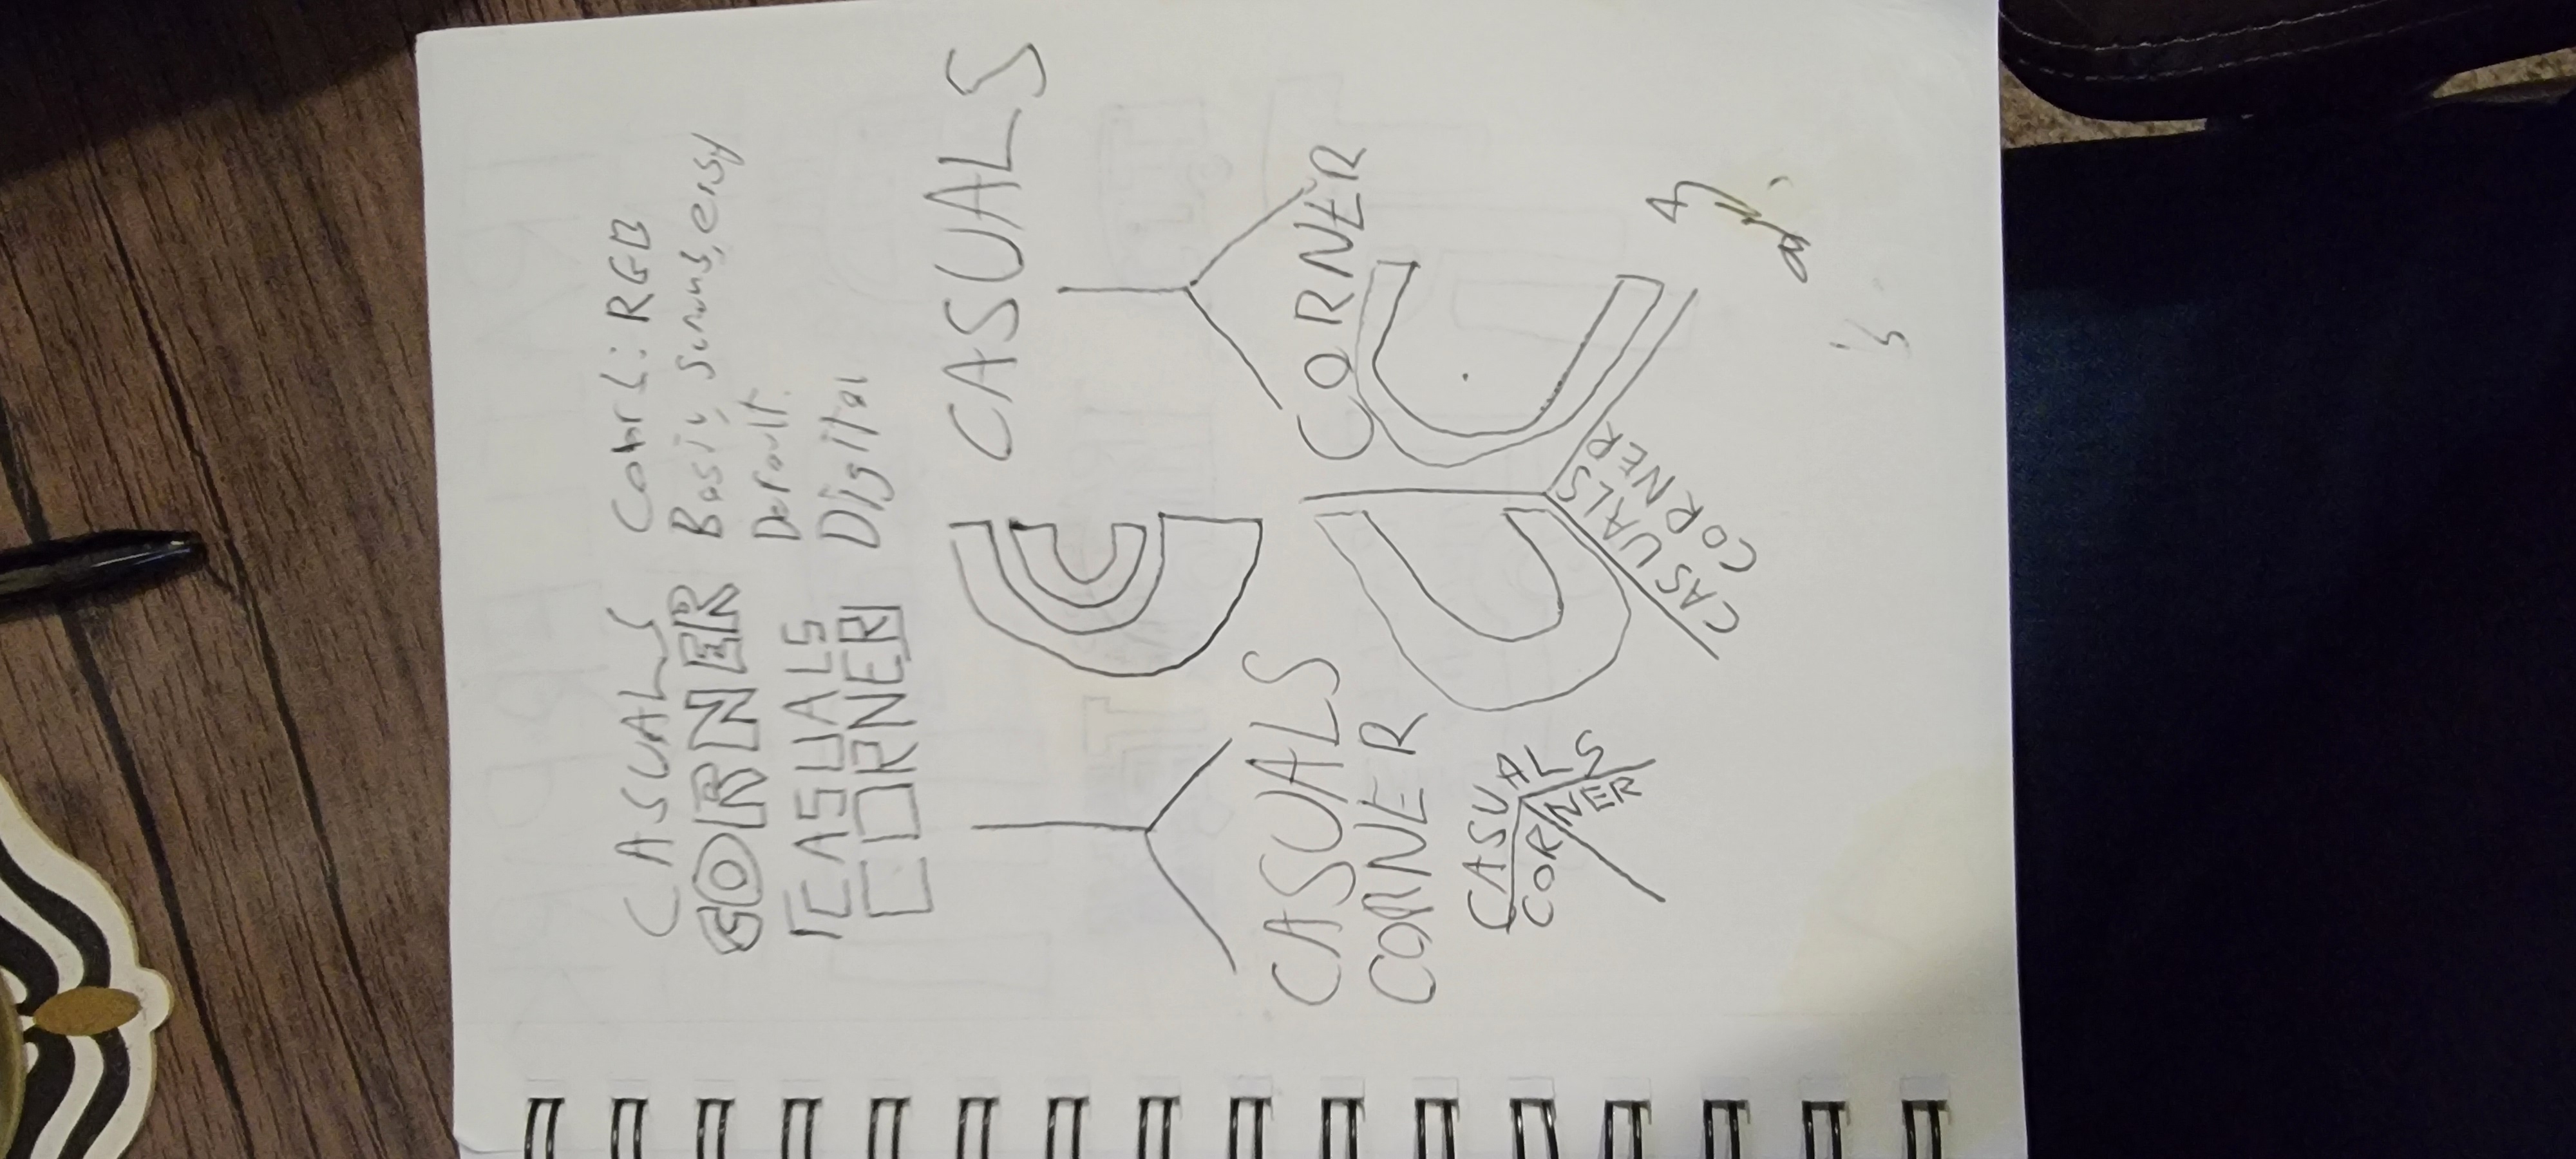 CASUALS
CORNER
CASUALS
CORNER
Colors: RGB
Basic, Serious, easy
Default.
Digital
CC
CASUALS
CORNER
CASUALS
CORNER
CASUALS
CORNER
C C
CASUALS
CORNER